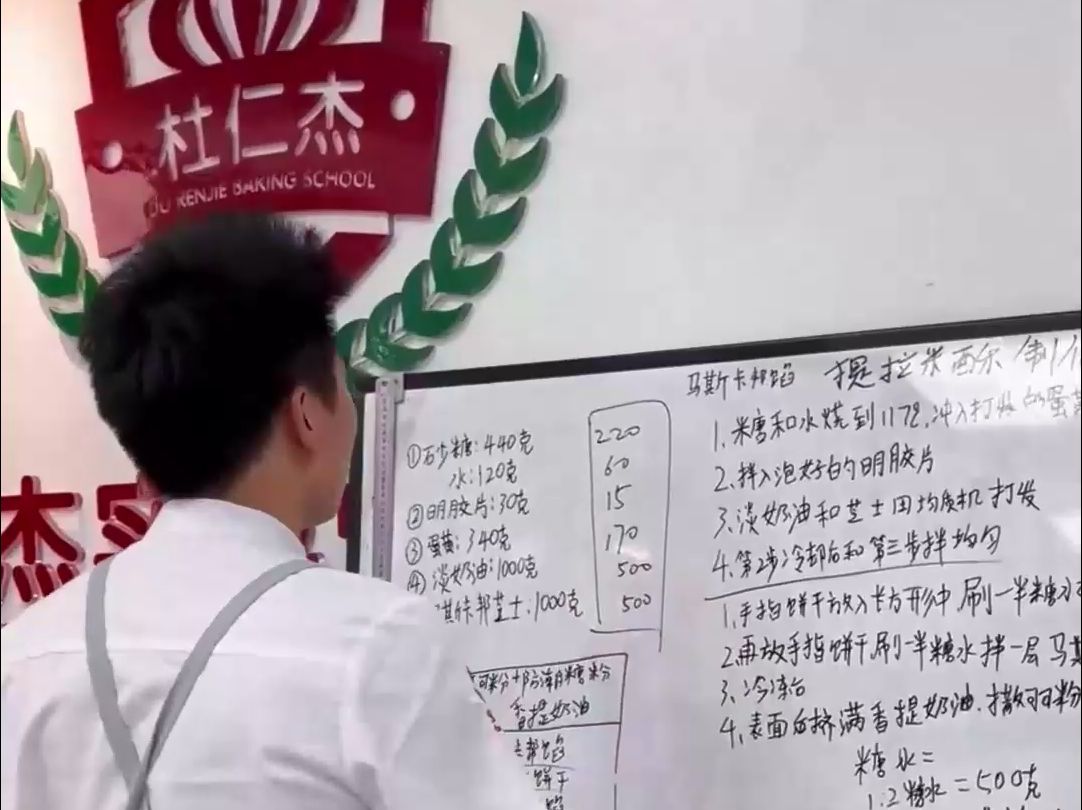 杜仁杰
DU RENJIE BAKING SCHOOL
杰
①石少糖:440克
水:120克
②明胶片:30克
③蛋黄:340克
④淡奶油:1000克
斯卡邦芝士:1000克
220
60
15
170
500
500
可粉+防潮糖粉
香提奶油
邦馅
饼干
馅
马斯卡邦馅 提拉米西尔 制
1.米糖和水烧到117℃,冲入打发的蛋黄
2.拌入泡好的明胶片
3.淡奶油和芝士用均质机打发
4.第2步冷却后和第三步拌均匀
1.手指饼干放入长方形中刷一半糖水
2.再放手指饼干刷一半糖水拌一层马斯
3.冷冻
4.表面在挤满香提奶油.撒可可粉
糖水=
1:2糖水=500克